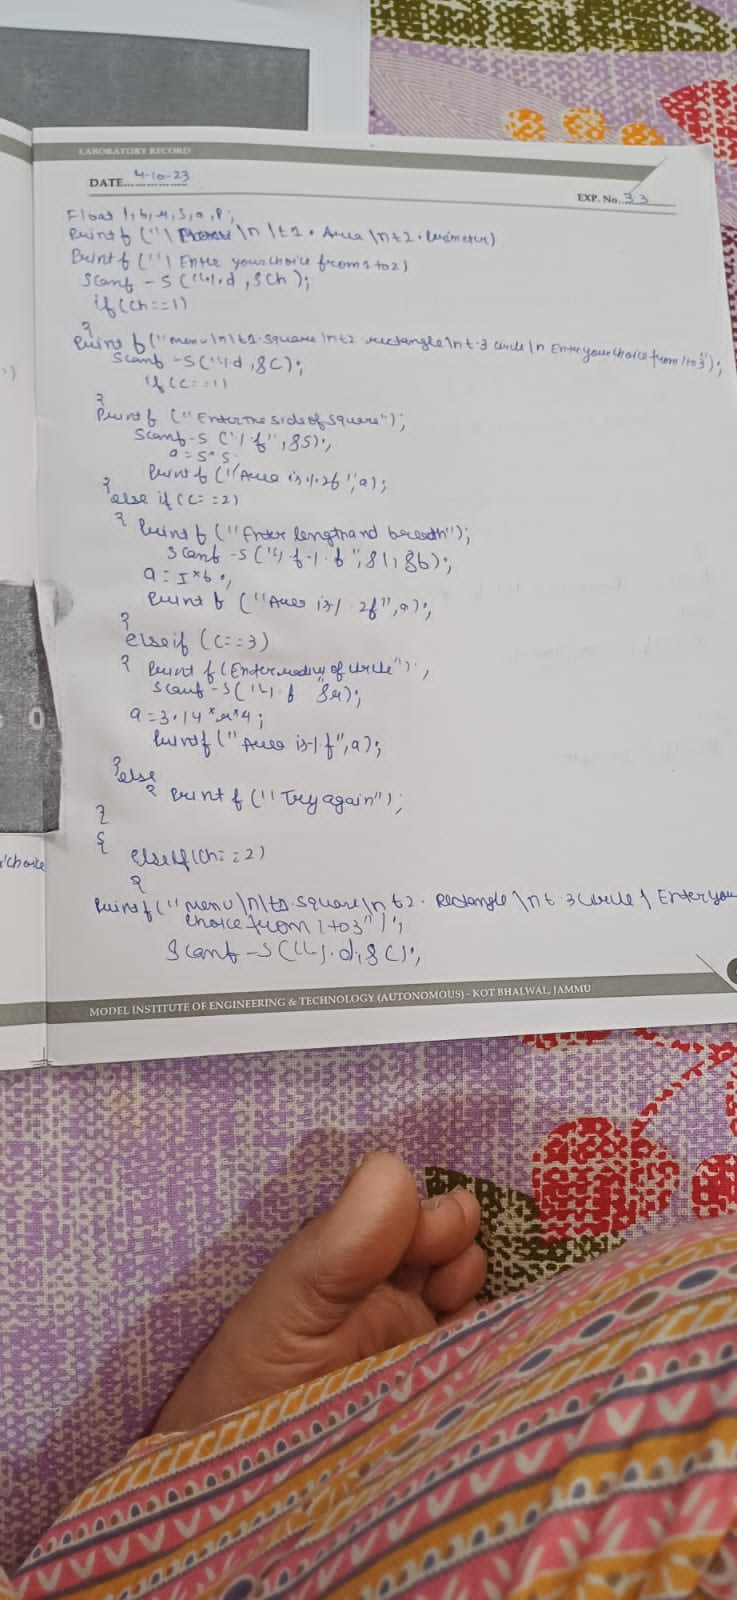 LABORATORY RECORD
DATE 4-10-23
EXP. No. 33
Float l, b, r, s, a, p;
Printf ("\ \n \t1. Area \nt2. Perimeter)
Printf ("\ Enter your choice from 1 to 2)
Scanf -S ("%d, &Ch);
if (Ch==1)
{
Printf ("menu\n\t1.square\nt2 rectangle\nt.3 circle\n Enter your choice from 1 to 3");
Scanf -S("%d, &C);
if (C==1)
{
Printf ("Enter the side of square");
Scanf-S ("%f", &S);
a = s*s
Printf ("Area is %.2f", a);
}
else if (C==2)
{ Printf ("Enter length and breadth");
Scanf -S ("%f-%f", &l, &b);
a = I*b;
Printf ("Area is %.2f", a);
}
else if (C==3)
{ Printf (Enter radius of circle");
Scanf -S("%f &r);
a = 3.14*r*4;
Printf ("Area is %f", a);
}
else
{ Printf ("Try again");
}
{
else if (Ch==2)
{
Printf ("menu\n\t1.square\nt2. Rectangle\nt.3 circle \ Enter you
choice from 1 to 3");
Scanf -S("%d, &C);
choice
MODEL INSTITUTE OF ENGINEERING & TECHNOLOGY (AUTONOMOUS) - KOT BHALWAL, JAMMU